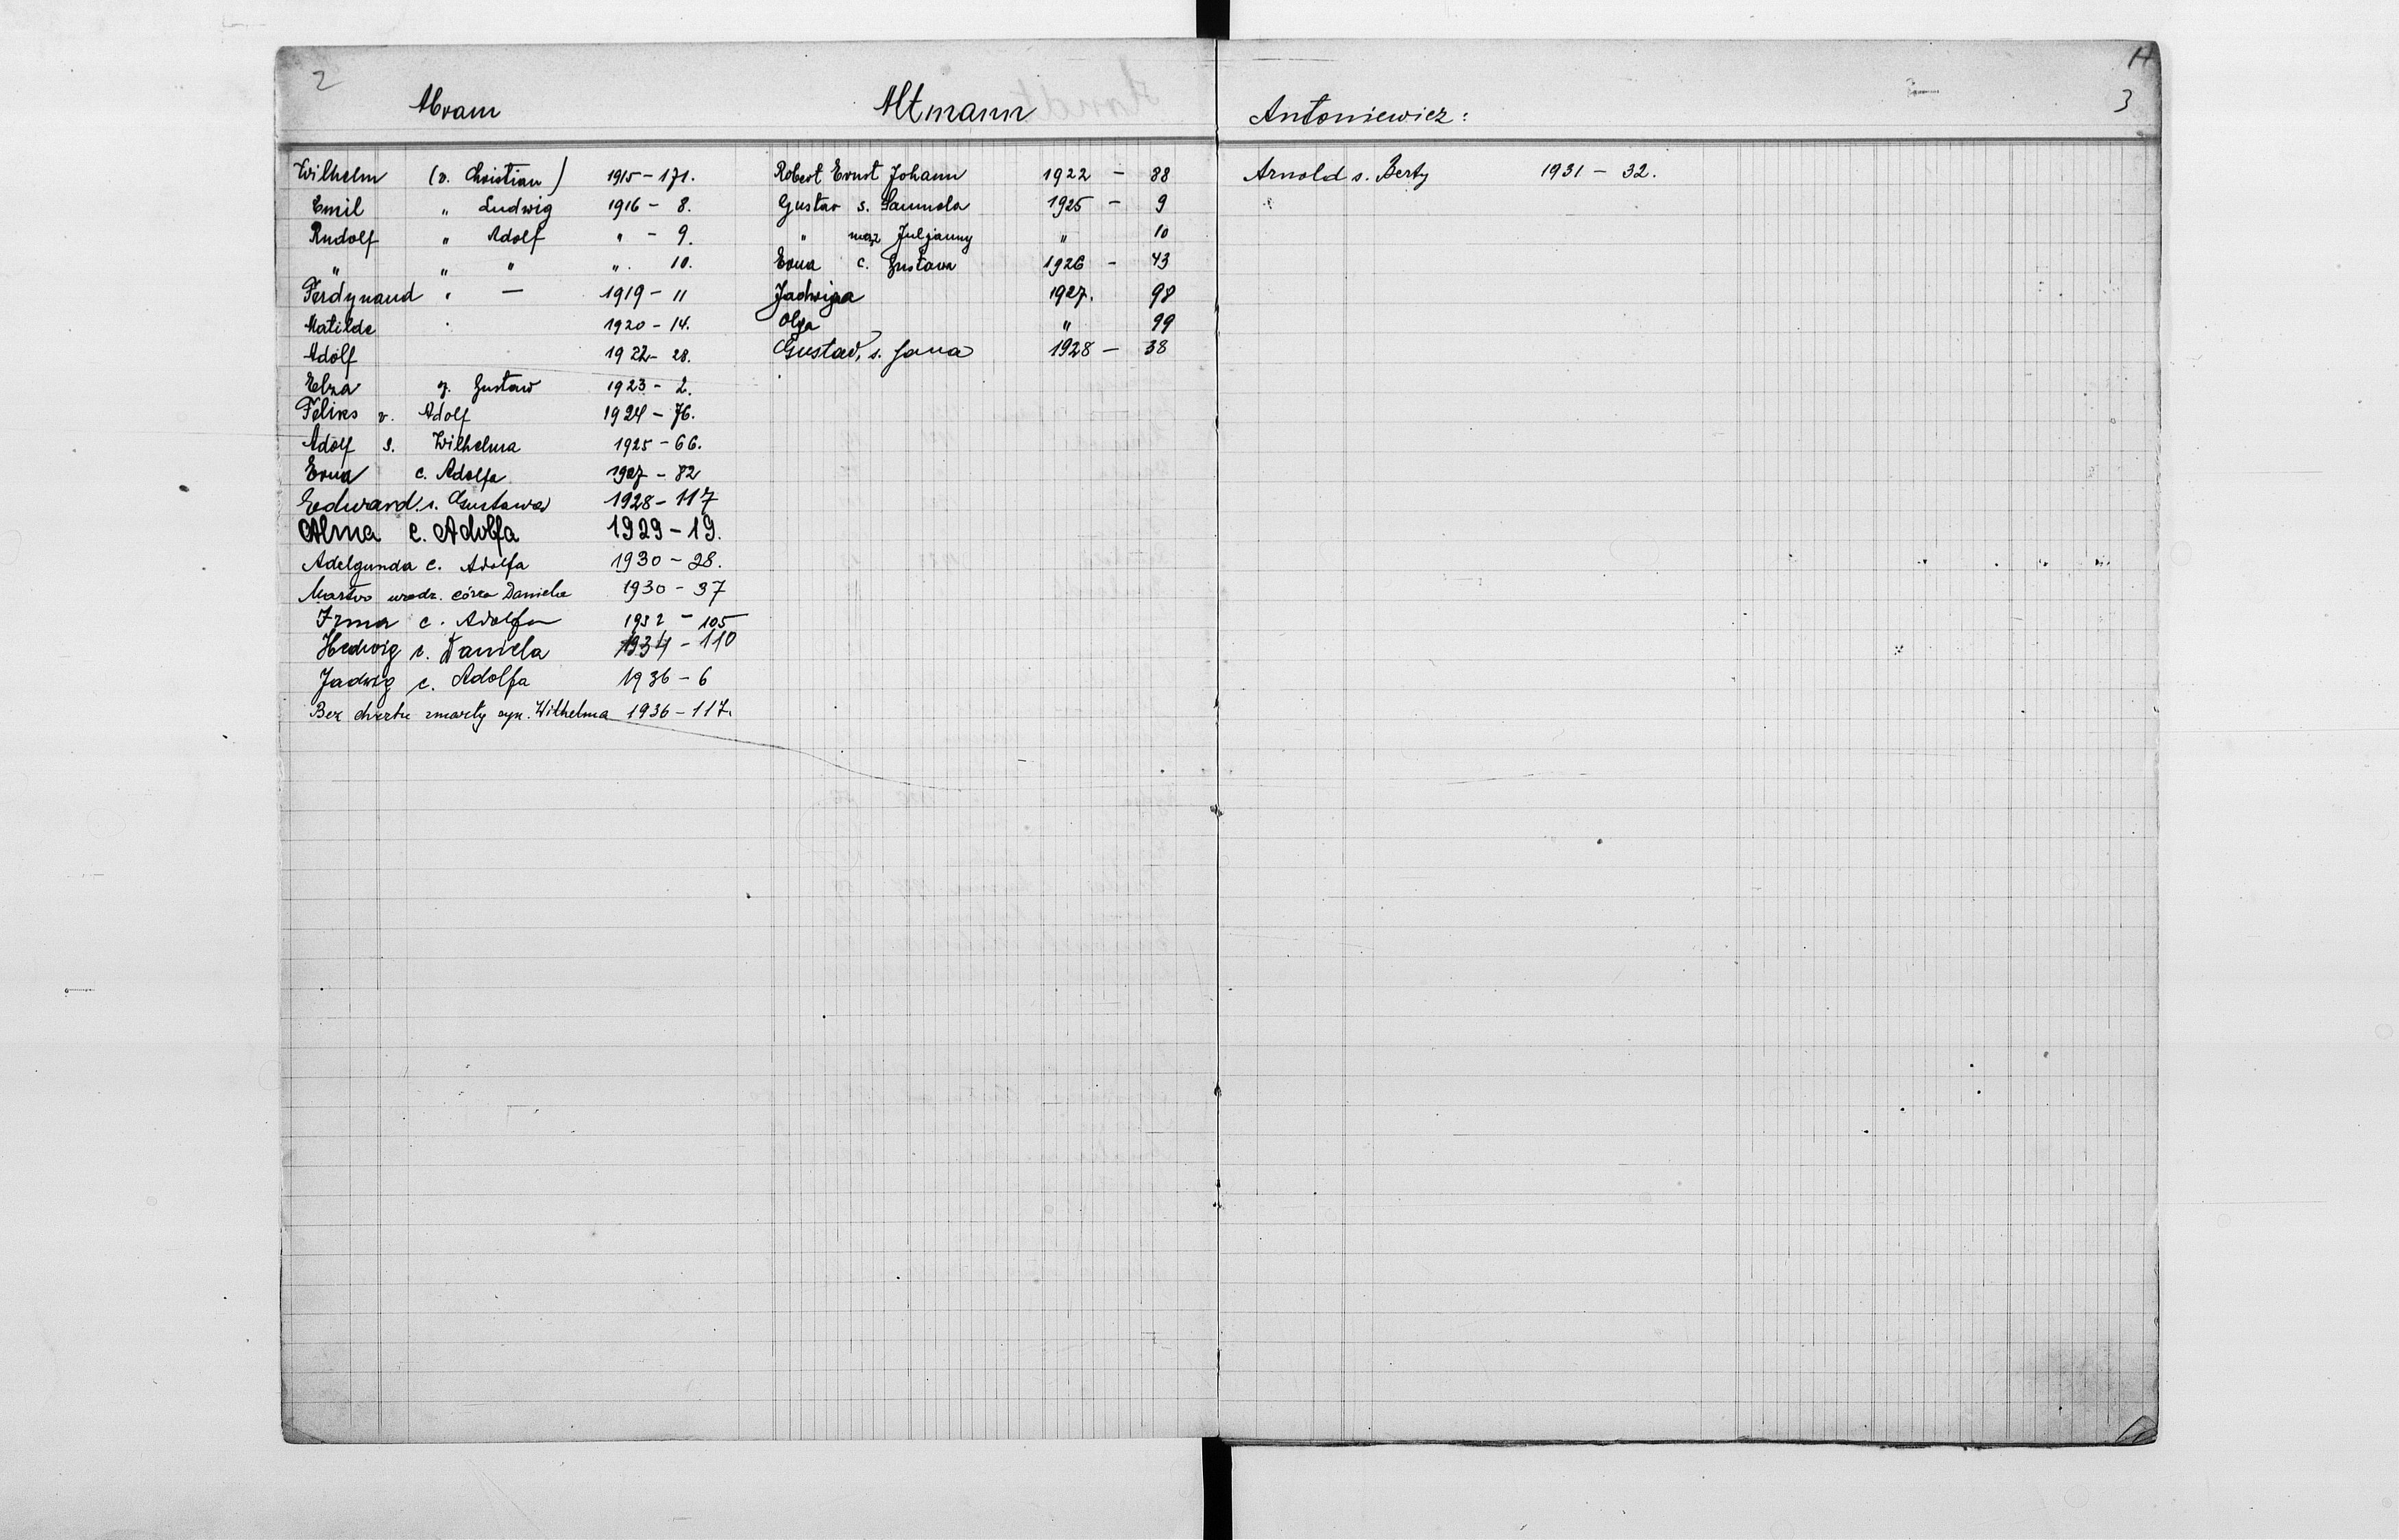 2
Abram
Wilhelm (v. Christian) 1915 - 171.
Emil " Ludwig 1916 - 8.
Rudolf " Adolf " - 9.
" " " ". 10.
Ferdynand " — 1919 - 11
Matilde 1920 - 14.
Adolf 1922 - 28.
Elza v. Gustaw 1923 - 2.
Feliks v. Adolf 1924 - 76.
Adolf s. Wilhelma 1925 - 66.
Erna c. Adolfa 1927 - 82
Edward s. Gustawa 1928 - 117
Alma c. Adolfa 1929 - 19.
Adelgunda c. Adolfa 1930 - 28.
Martwo urodz. córka Daniela 1930 - 37
Irma c. Adolfa 1932 - 105
Hedwig c. Daniela 1934 - 110
Jadwig c. Adolfa 1936 - 6
Bez chrztu zmarły syn. Wilhelma 1936 - 117.
Altmann
Robert Ernst Johann 1922 - 88
Gustav s. Samuela 1925 - 9
" mąż Juljanny " 10
Erna c. Gustawa 1926 - 43
Jadwiga 1927. 98
Olga " 99
Gustav, s. Jana 1928 - 38
A
3
Antoniewicz:
Arnold s. Berty 1931 - 32.